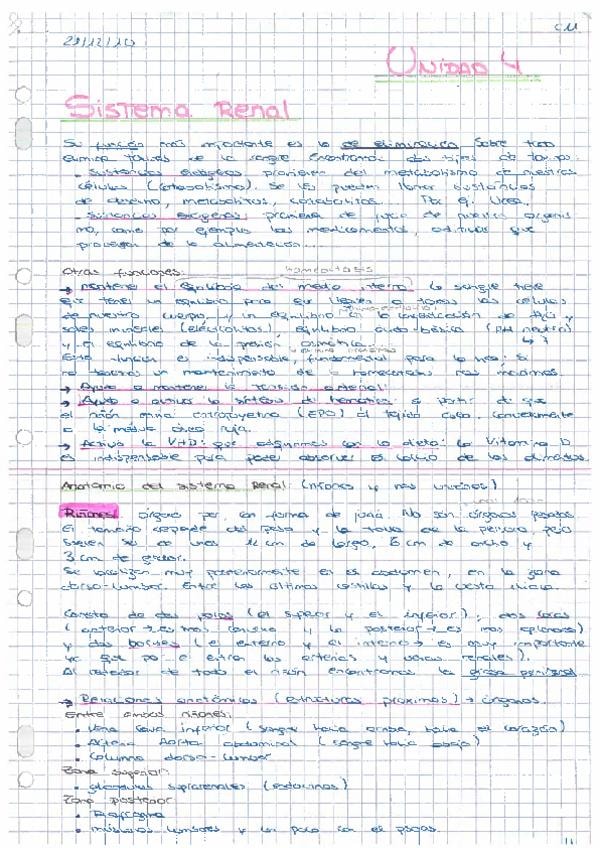 CM
29/12/20
UNIDAD 4
Sistema Renal
Su función más importante es la de eliminación. Sobre todo
elimina tóxicos de la sangre. Encontramos dos tipos de
- Sustancias endógenas: provienen del metabolismo de nuestras
células (catabolismo). Se les pueden llamar sustancias
de desecho, metabolitos, catabolitos. Por ej. Urea.
- Sustancias exógenas: proviene de fuera de nuestro organis
mo, como por ejemplo los medicamentos, aditivos que
provengan de la alimentación...
Otras funciones: homeostasis
→ mantener el equilibrio del medio interno. La sangre tiene
que tener un equilibrio para que lleguen a todas las células
de nuestro cuerpo, y un equilibrio en la concentración de agua y
sales minerales (electrolitos), equilibrio ácido-básico (pH neutro)
y el equilibrio de la presión osmótica. ↳ 7
Esta función es indispensable, fundamental para la vida: si
no tenemos un mantenimiento de la homeostasis nos morimos.
→ Ayuda a mantener la tensión arterial.
→ Ayuda a activar la síntesis de hematíes a partir de que
el riñón envía eritropoyetina (EPO) al tejido
a la médula ósea roja.
→ Activa la VitD: que adquirimos con la dieta: la Vitamina D
es indispensable para poder absorber el calcio de los alimentos.
Anatomía del sistema Renal: (riñones y vías urinarias)
Riñones: órgano par, en forma de judía. No son órganos pesados.
El tamaño depende del peso y la talla de la persona, pero
suelen ser de unos 12 cm de largo, 6 cm de ancho y
3 cm de grosor.
Se localizan muy posteriormente en el abdomen, en la zona
dorso-lumbar. Entre las últimas costillas y la cresta iliaca.
Consta de dos polos (el superior y el inferior), dos caras
(anterior → es más convexa y la posterior → es más aplanada)
y dos bordes (el externo y el interno → es muy importante
ya que por él entran las arterias y venas renales).
Al rededor de todo el riñón encontramos la grasa perirrenal
→ Relaciones anatómicas (estructuras próximas) → órganos.
Entre ambos riñones:
• Vena Cava inferior (sangre hacia arriba, hacia el corazón)
• Arteria Aorta abdominal (sangre hacia abajo)
• Columna dorso-lumbar
Zona superior
• glándulas suprarrenales (endocrinas)
Zona posterior
• Diafragma
• músculos lumbares y un poco con el psoas.